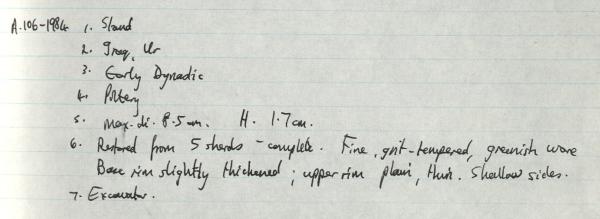 A.106-1984 1. Stand
2. Iraq, Ur
3. Early Dynadic
4. Pottery
5. max. di. 8.5 cm. H. 1.7 cm.
6. Restored from 5 sherds - complete. Fine, grit-tempered, greenish ware
Base rim slightly thickened; upper rim plain, thin. Shallow sides.
7. Excavator.